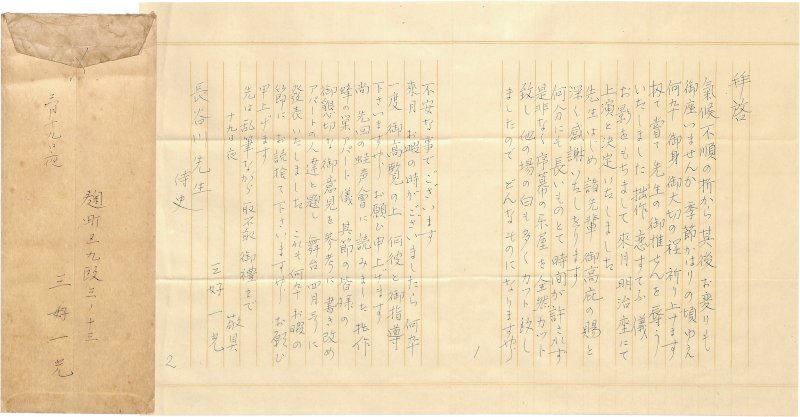 拝啓
氣候不順の折から其後お変りも
御座いませんか 季節がはりの頃ゆえ
何卒 御身御大切の程 祈り上げます
扨て 賞て 先生の御推せんを辱う
いたしました 拙作 恋すてふ 儀
お蔭をもちまして 来月 明治座にて
上演と決定いたしました
先生はじめ 諸先輩 御高庇の賜と
深く感謝いたし居ります
何分にも 長いものとて 時間が許されず
是非なく 序幕の楽屋を全然カット
致し 他の場の白も多くカット致し
ましたので どんなものになりますやら
1
不安な事でございます
来月 お暇の時がございましたら 何卒
一度 御高覧の上 何彼と御指導
下さいますやう お願ひ申上げます
尚 先回の蛙声會に読みました 拙作
蛙の巣アパート儀 其節の皆様の
御懇切な御意見を参考に書き改め
アパートの人達と題し 舞台四月号に
発表いたしました これも何卒 お暇の
節に お読捨て下さいますやう お願ひ
申上げます
先は 乱筆ながら 取不敢 御禮まで
敬具
十九日夜
三好一光
長谷川先生
侍史
2
三月十九日夜
麹町区九段三ノ十三
三好一光